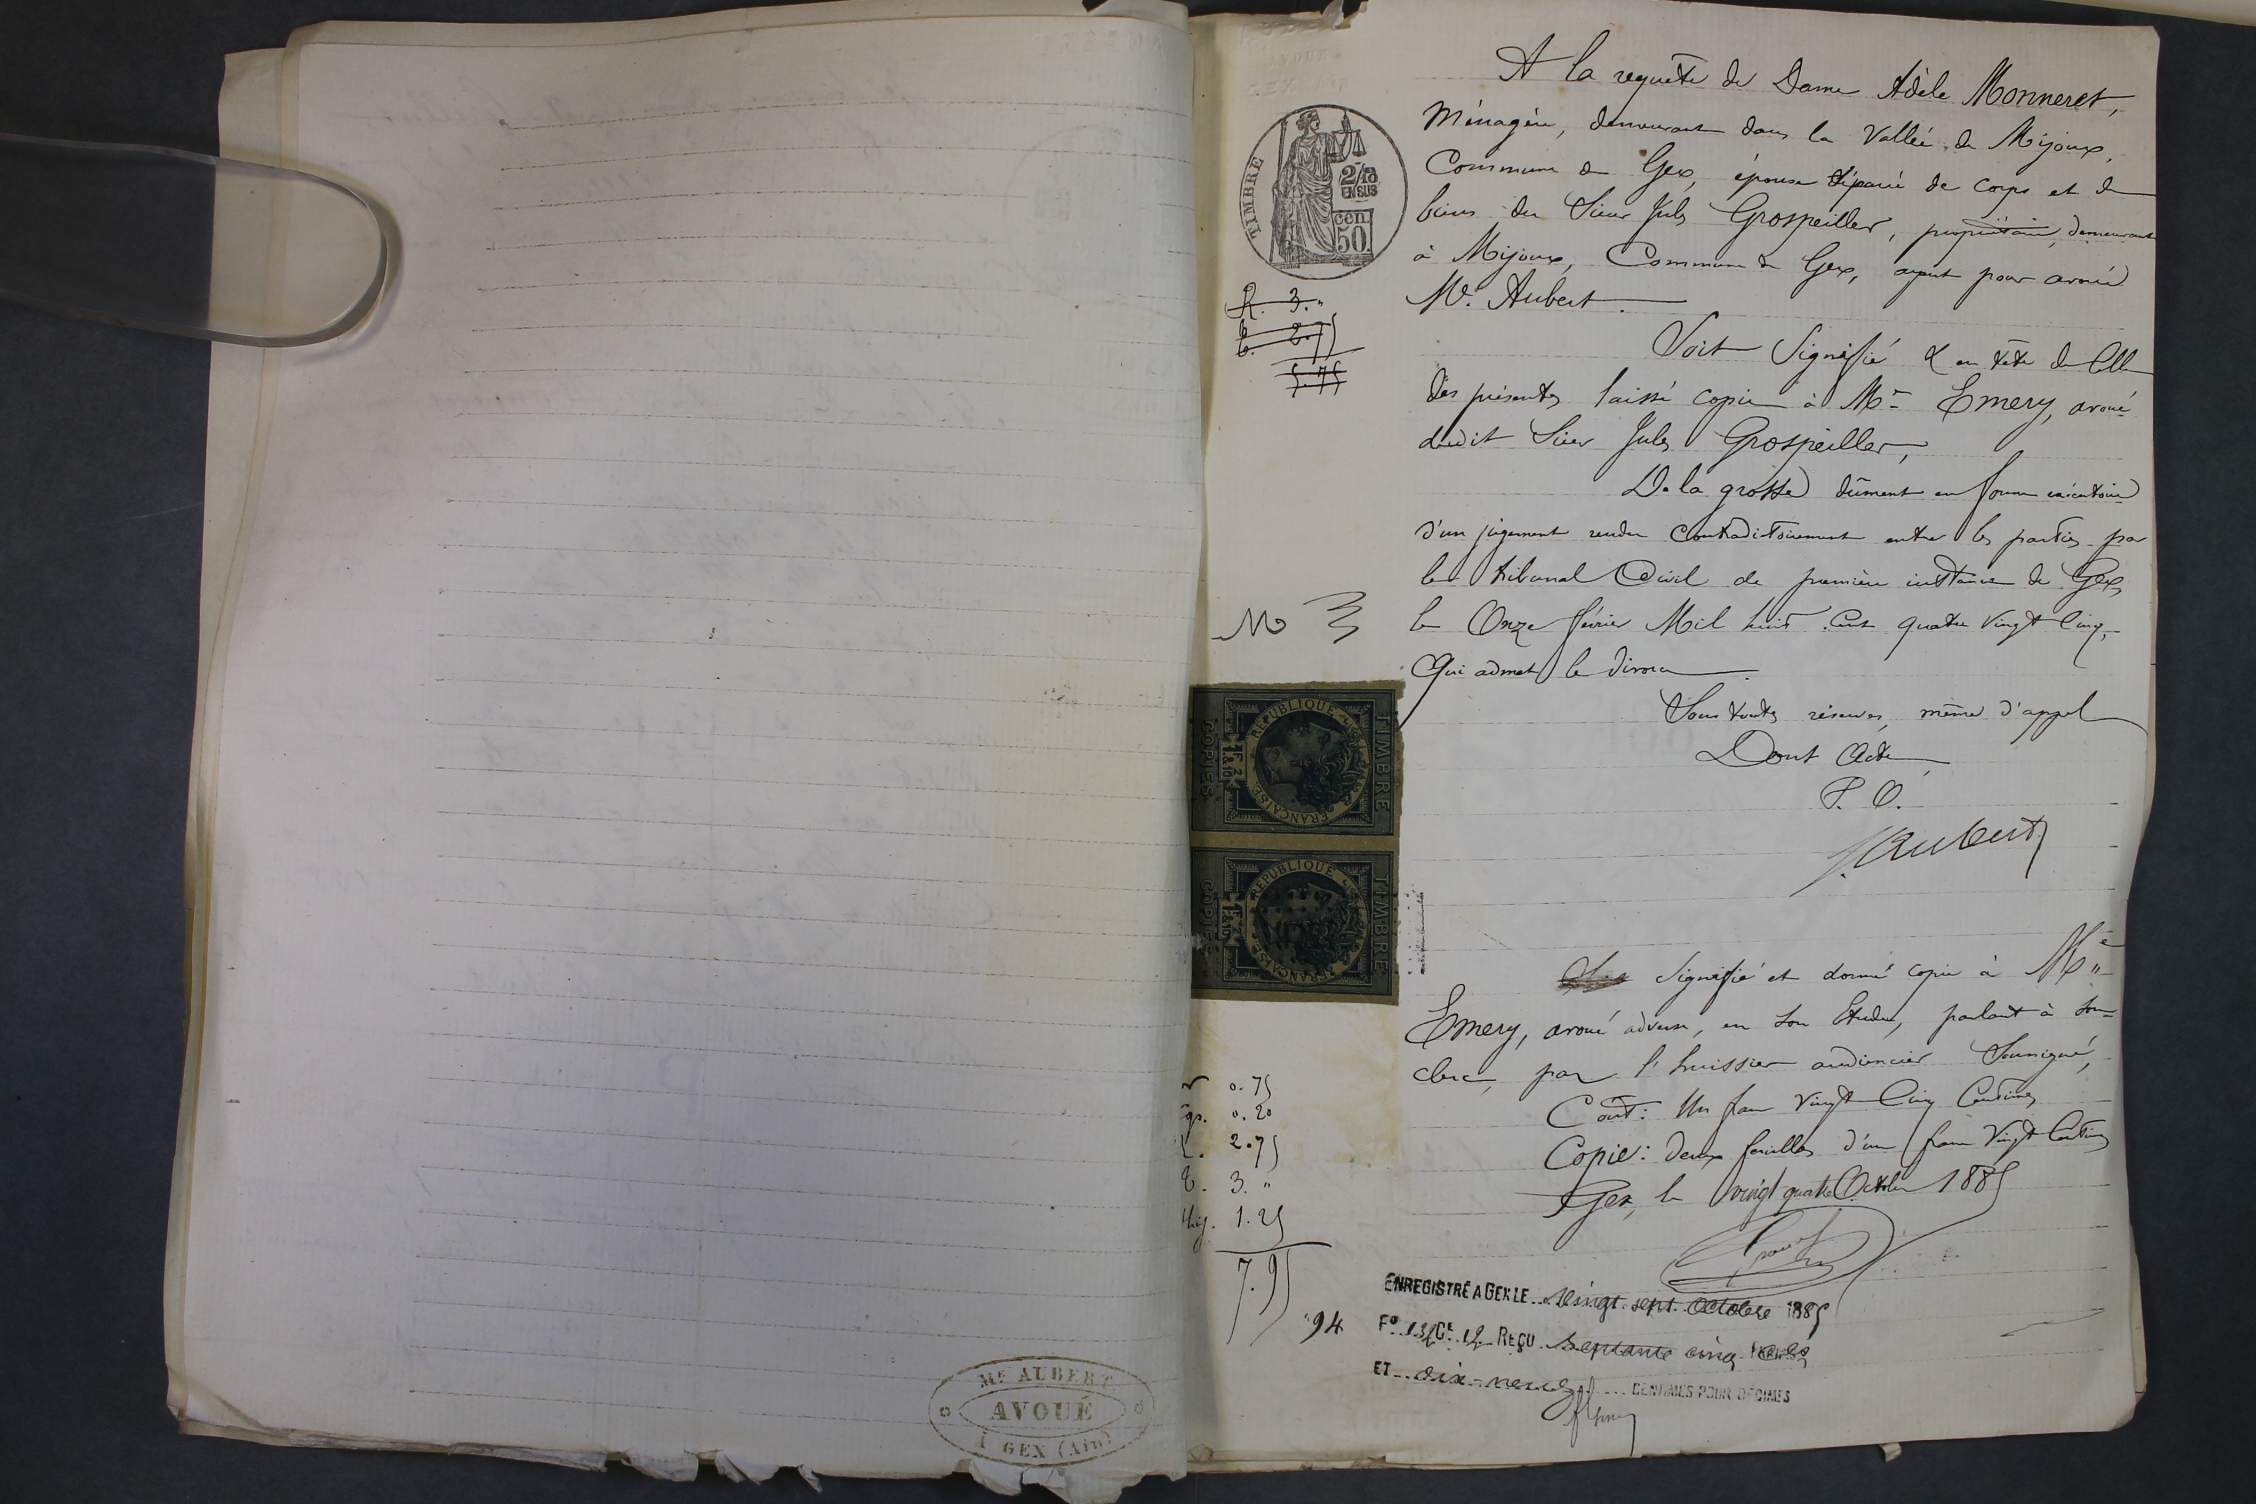 A la requête de Dame Adèle Monneret,
Ménagère, demeurant dans la Vallée de Mijoux,
Commune de Gex, épouse séparée de corps et de
biens du Sieur Jules Grospeiller, propriétaire, demeurant
à Mijoux, Commune de Gex, ayant pour avoué
Me. Aubert.
TIMBRE
2/10
EN SUS
cen
50.
R. 3."
T. 2.75
5.75
Soit Signifié & en tête de celle
des présentes laissé copie à Me Emery, avoué
dudit Sieur Jules Grospeiller,
De la grosse dûment en forme exécutoire
d'un jugement rendu Contradictoirement entre les parties par
le tribunal Civil de première instance de Gex
le Onze février Mil huit Cent quatre Vingt Cinq,
Qui admet le divorce.
Sous toutes réserves, même d'appel
Dont Acte,
P. O.
J. Aubert
TIMBRE
REPUBLIQUE FRANÇAISE
1F 2/10
COPIES
TIMBRE
REPUBLIQUE FRANÇAISE
1F 2/10
COPIES
Signifié et donné copie à Me
Emery, avoué adverse, en son Etude, parlant à son
clerc, par l'huissier audiencier Soussigné,
Coût: Un franc Vingt Cinq Centimes
Copie: Deux feuilles d'un franc Vingt Centimes
Gex, le vingt quatre Octobre 1885
0.75
0.20
2.75
T. 3."
1.25
7.95
94
ENREGISTRÉ A GEX LE vingt sept Octobre 1885
Fo Ce 12 REÇU Septante cinq
ET dix-neuf CENTIMES POUR DÉCIMES
Me AUBERT
AVOUÉ
A GEX (Ain)